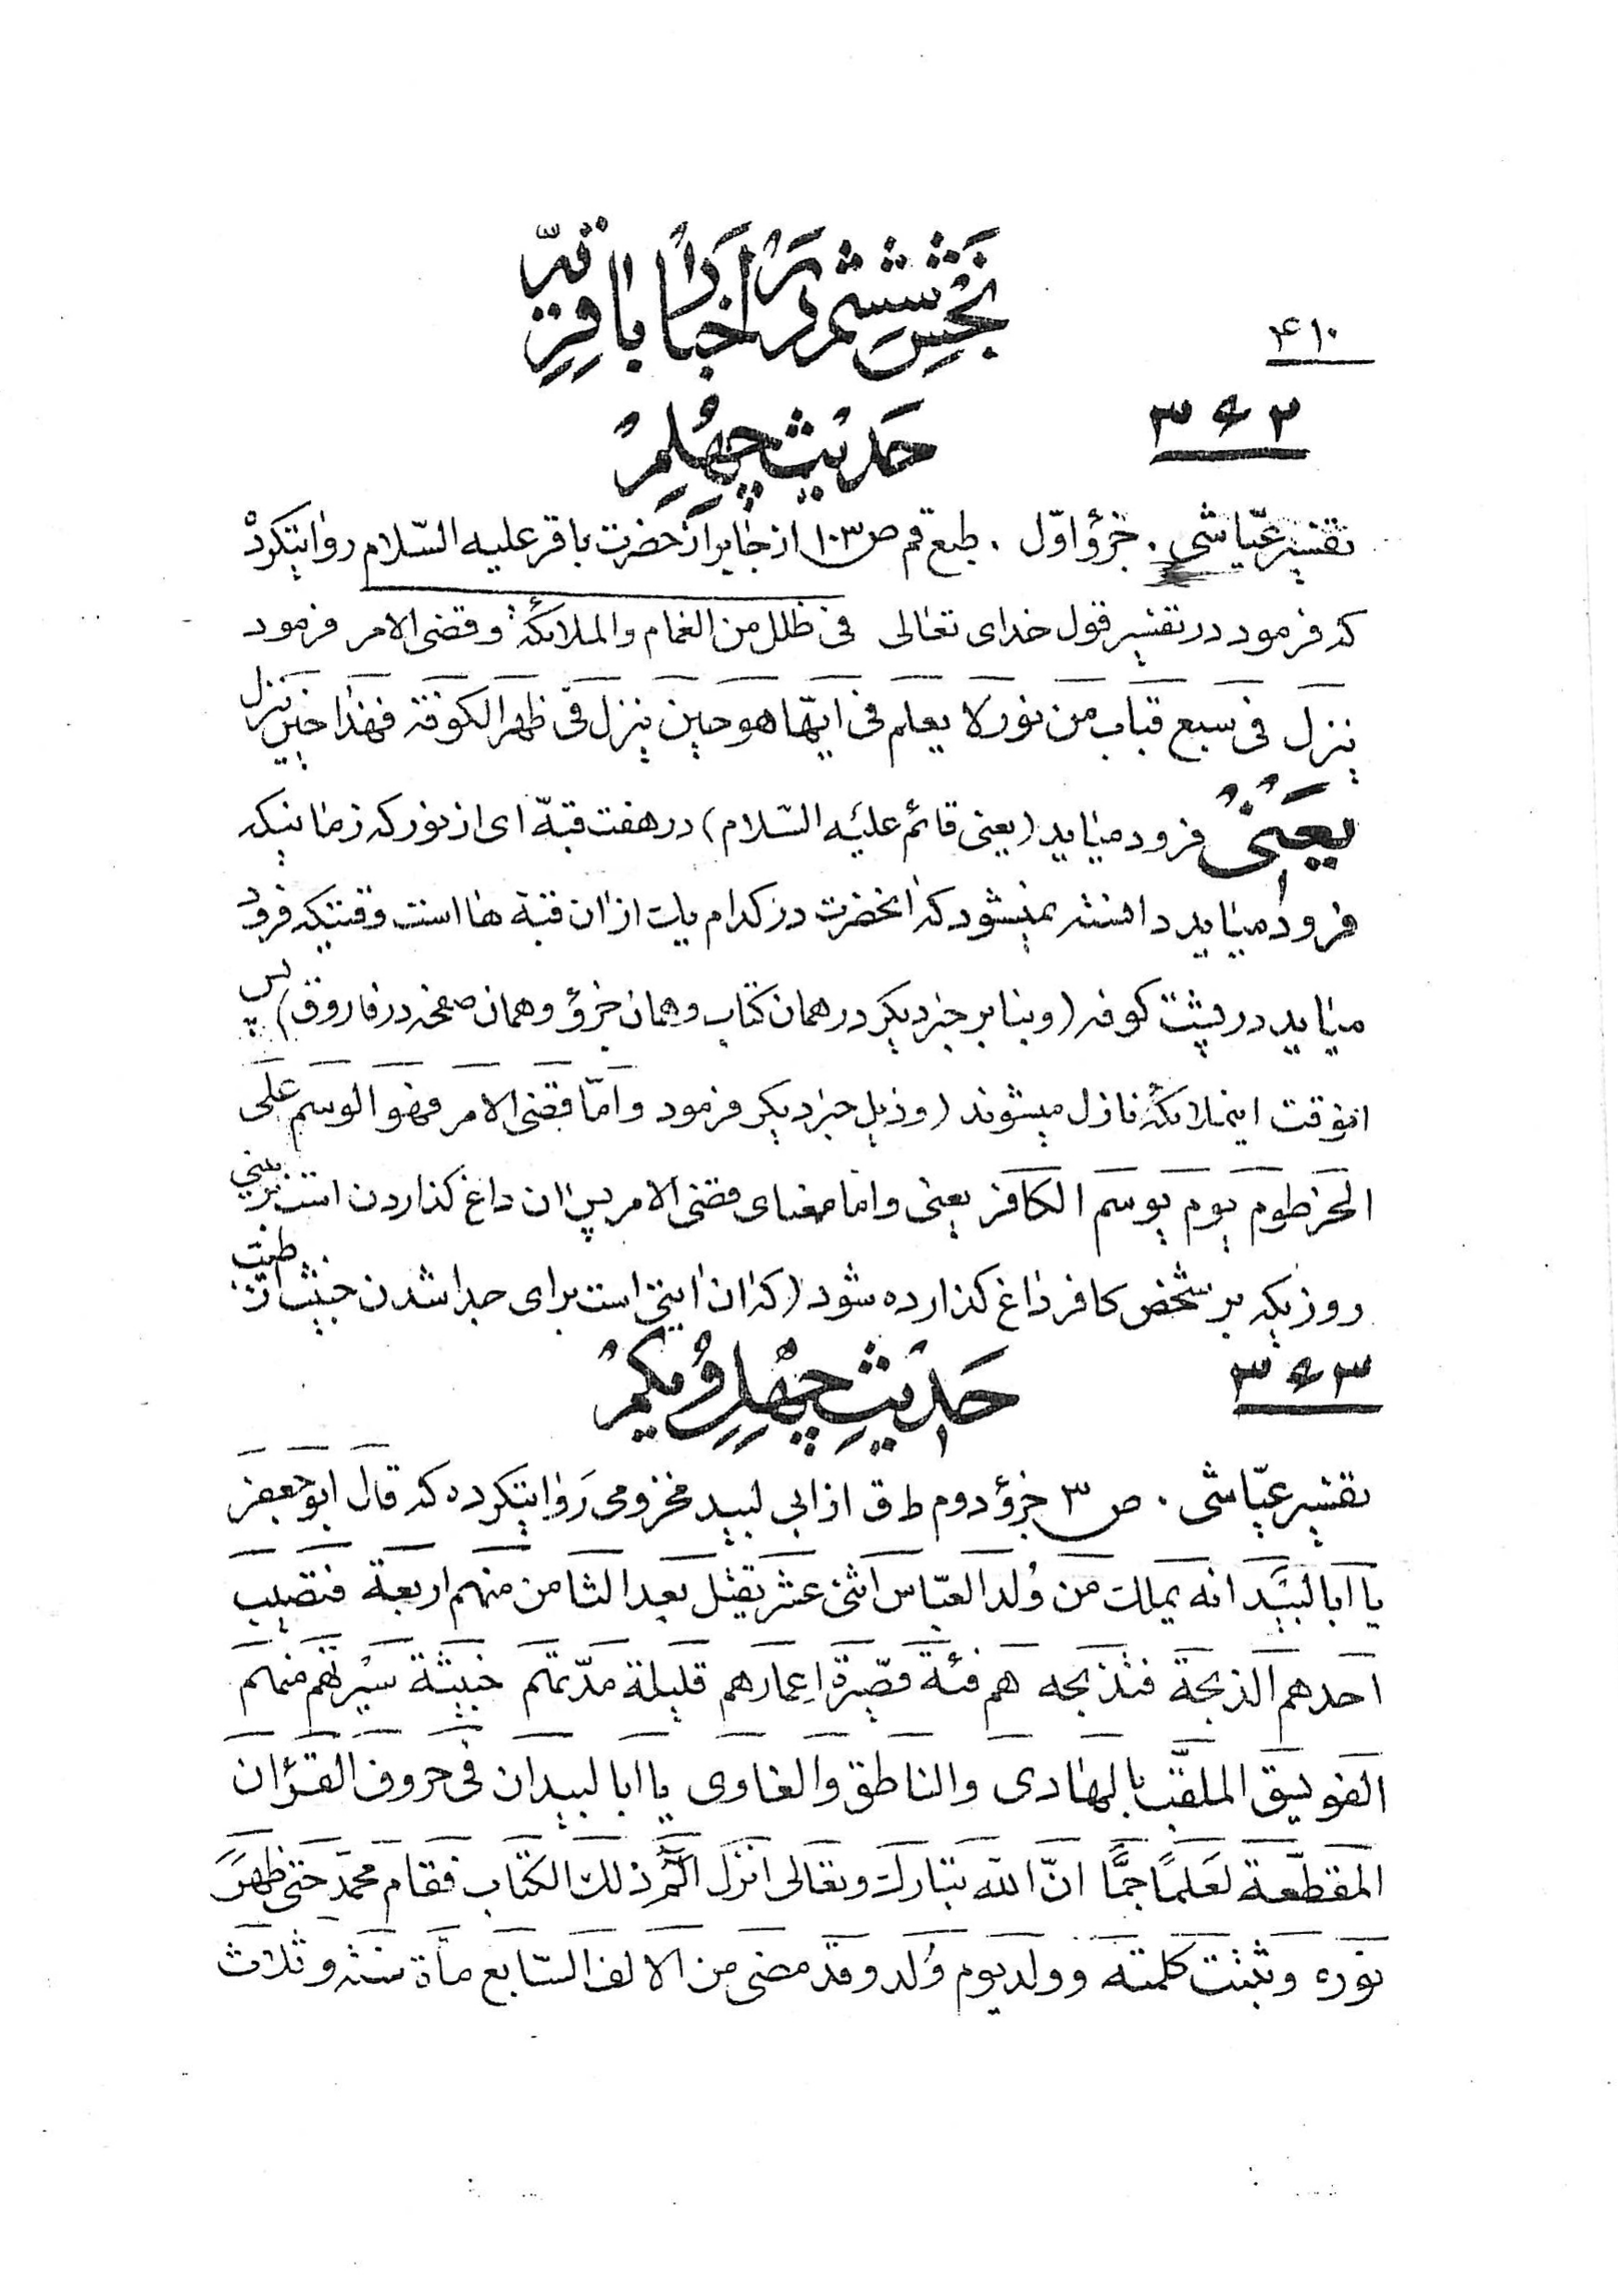 بخش ششم در اخبار باقریّه
۴۱۰
۳۶۲
حدیث چهلم
تفسیر عیّاشی . جزؤ اوّل . طبع قم ص ۱۰۳ از جابر از حضرت باقر علیه السّلام روایتکرده
که فرمود در تفسیر قول خدای تعالی فی ظلل من الغمام والملائکة وقضی الامر فرمود
ینزل فی سبع قباب من نور لا یعلم فی ایّها هو حین ینزل فی ظهر الکوفة فهذا حین ینزل
یعنی فرود میاید (یعنی قائم علیه السّلام) در هفت قبّه ای از نور که زمانیکه
فرود میاید دانسته نمیشود که انحضرت در کدام یک از ان قبه ها است وقتیکه فرود
میاید در پشت کوفه (و بنا بر خبر دیگر در همان کتاب و همان جزؤ و همان صفحه در فاروق) پس
انوقت اینملائکه نازل میشوند (و ذیل خبر دیگر فرمود و امّا قضی الامر فهو الوسم علی
الخرطوم یوم یوسم الکافر یعنی و اما معنای قضی الامر پس ان داغ گذاردن است بر بینی
روزیکه بر شخص کافر داغ گذارده شود (که ان ایتی است برای جدا شدن خبیث از طیّب
۳۶۳
حدیث چهل و یکم
تفسیر عیّاشی . ص ۳ جزؤ دوم ط ق از ابی لبید مخزومی روایتکرده که قال ابو جعفر
یا ابا لبید انه یملک من ولد العبّاس اثنی عشر یقتل بعد الثامن منهم اربعة فتصیب
احدهم الذبحة فتذبحه هم فئة قصیرة اعمارهم قلیلة مدّتهم خبیثة سیرتهم منهم
الفویسق الملقّب بالهادی والناطق والغاوی یا ابا لبید ان فی حروف القرٔان
المقطّعة لعلمًا جمًّا انّ الله تبارک وتعالی انزل الٓمٓ ذلک الکتاب فقام محمّد حتی ظهر
نوره وثبتت کلمته وولد یوم ولد وقد مضی من الالف السّابع مأة سنة وثلاث